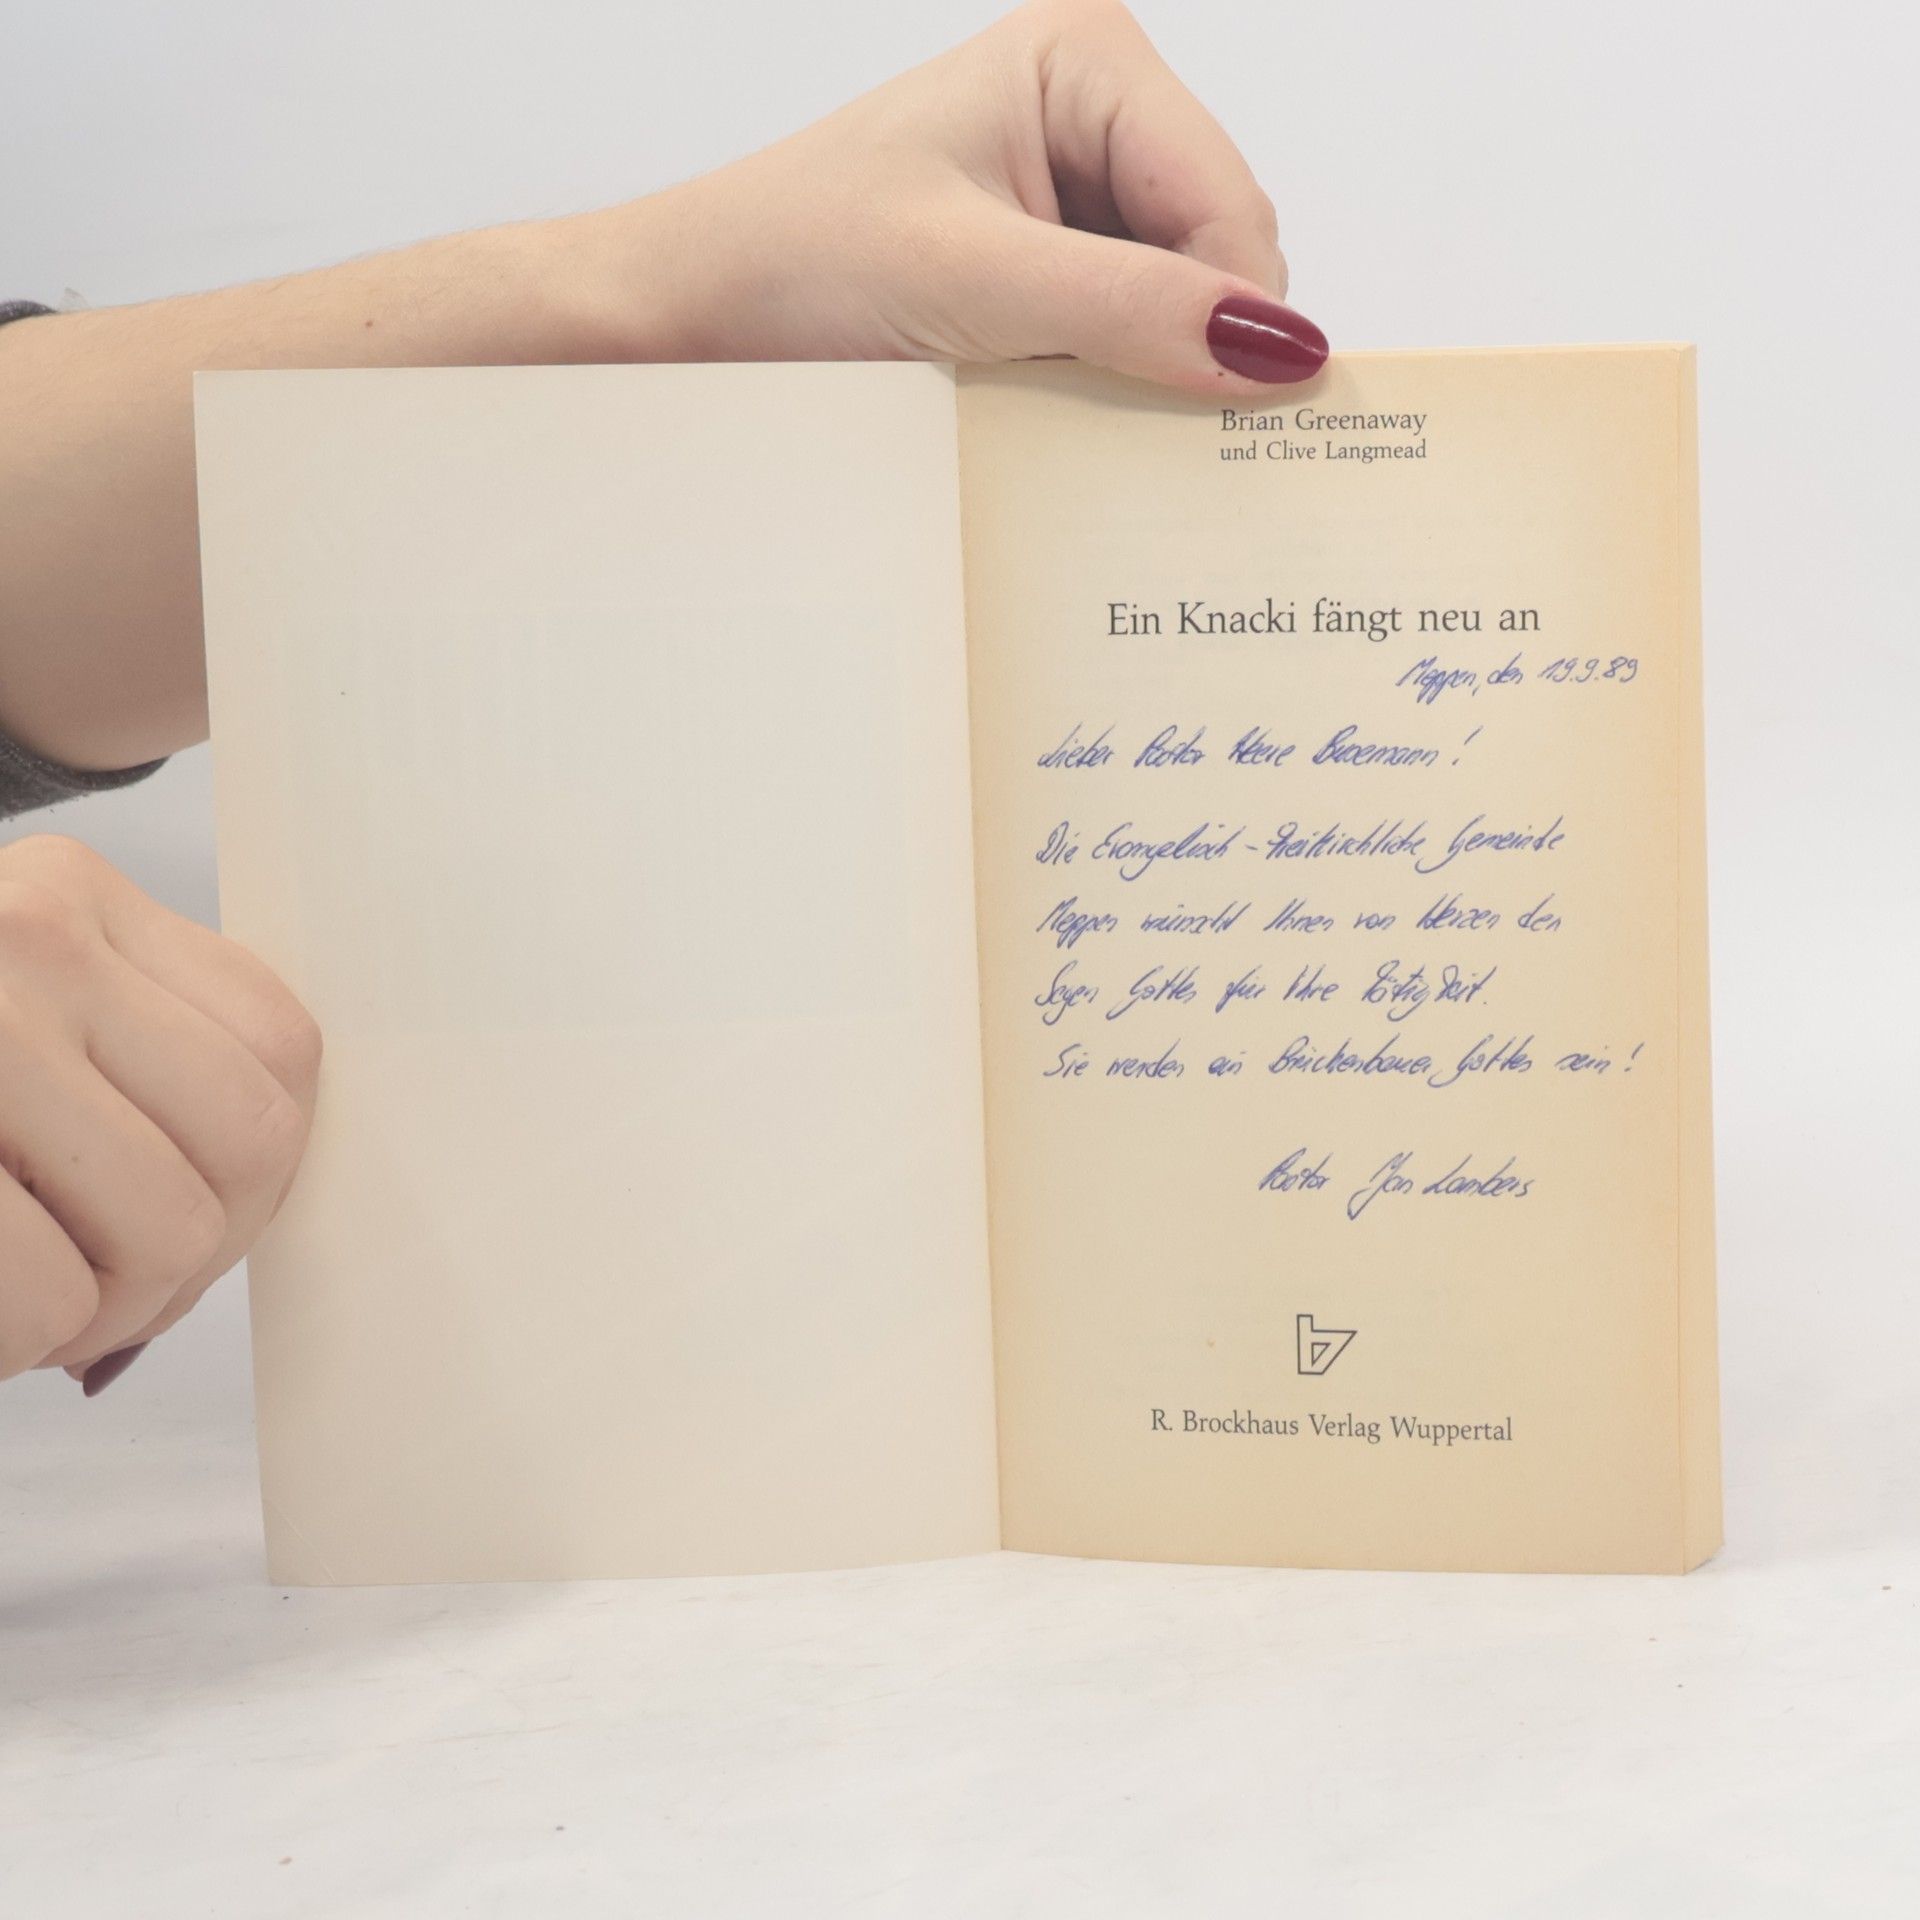 Brian Greenaway
und Clive Langmead
Ein Knacki fängt neu an
Meppen, den 19.9.89
Lieber Pastor Heere Busemann!
Die Evangelisch-Freikirchliche Gemeinde
Meppen wünscht Ihnen von Herzen den
Segen Gottes für Ihre Tätigkeit.
Sie werden ein Brückenbauer Gottes sein!
Pastor Jan Lambers
R. Brockhaus Verlag Wuppertal